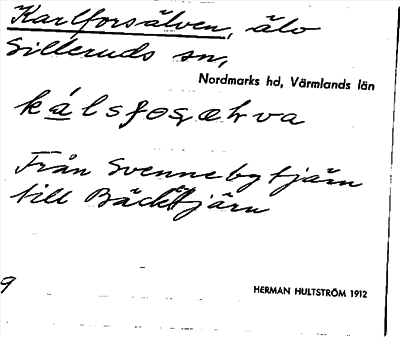 Karlforsälven, älv
Silleruds sn,
Nordmarks hd, Värmlands län
Från Svennebytjärn
till Bäcktjärn
9
HERMAN HULTSTRÖM 1912